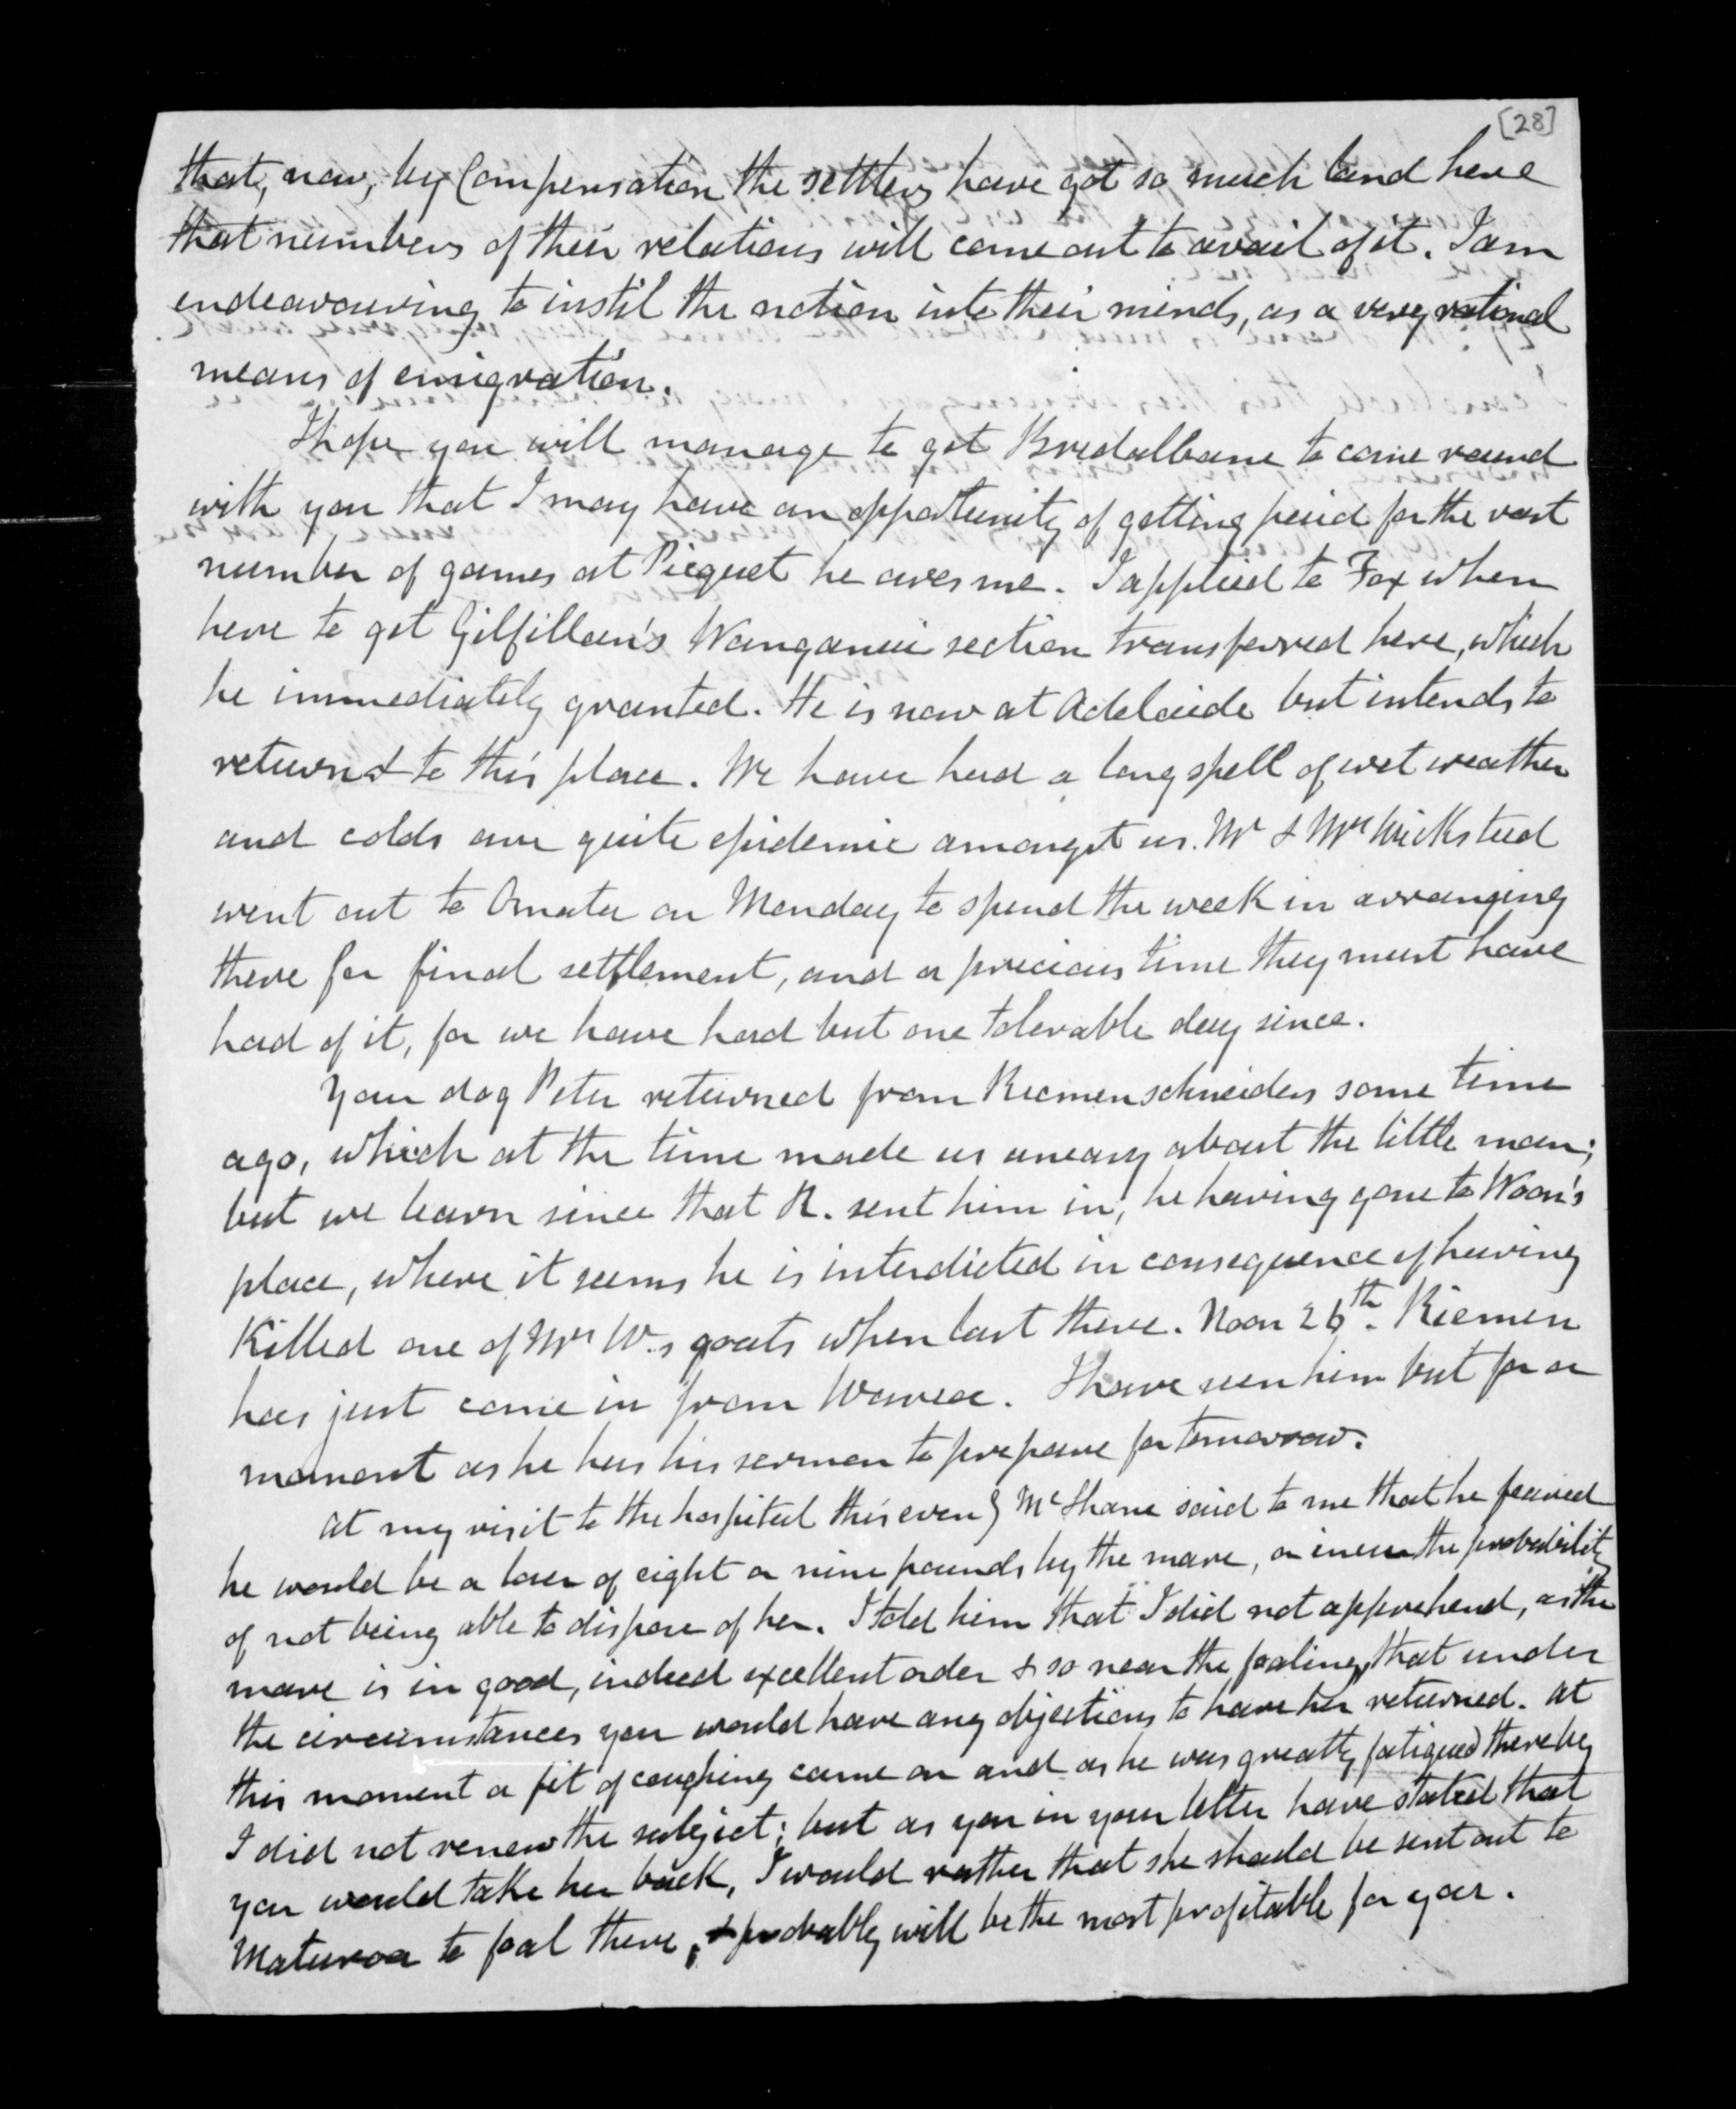 [28]
that, now, by Compensation the settlers have got so much land here
that numbers of their relations will come out to avail of it. I am
endeavouring to instil the notion into their minds, as a very rational
means of emigration.
I hope you will manage to get Bredalbane to come round
with you that I may have an opportunity of getting paid for the vast
number of games at Picquet he owes me. I applied to Fox when
here to get Gilfillan's Wanganui section transferred here, which
he immediately granted. He is now at Adelaide but intends to
return to this place. We have had a long spell of wet weather
and colds are quite epidemic amongst us. Mr & Mrs Wicksteed
went out to Omata on Monday to spend the week in arranging
there for final settlement, and a precious time they must have
had of it, for we have had but one tolerable day since.
Your dog Peter returned from Riemenschneiders some time
ago, which at the time made us uneasy about the little man;
but we learn since that R. sent him in, he having gone to Woon's
place, where it seems he is interdicted in consequence of having
Killed one of Mr W.s goats when last there. Noon 26th. Riemen
has just come in from Warea. I have seen him but for a
moment as he has his sermon to prepare for tomorrow.
At my visit to the hospital this eveng McShane said to me that he feared
he would be a loser of eight or nine pounds by the mare, or incur the probability
of not being able to dispose of her. I told him that I did not apprehend, as the
mare is in good, indeed excellent order & so near the foaling, that under
the circumstances you would have any objections to have her returned. At
this moment a fit of coughing came on and as he was greatly fatigued thereby
I did not renew the subject; but as you in your letter have stated that
you would take her back, I would rather that she should be sent out to
Maturoa to foal there, & probably will be the most profitable for you.